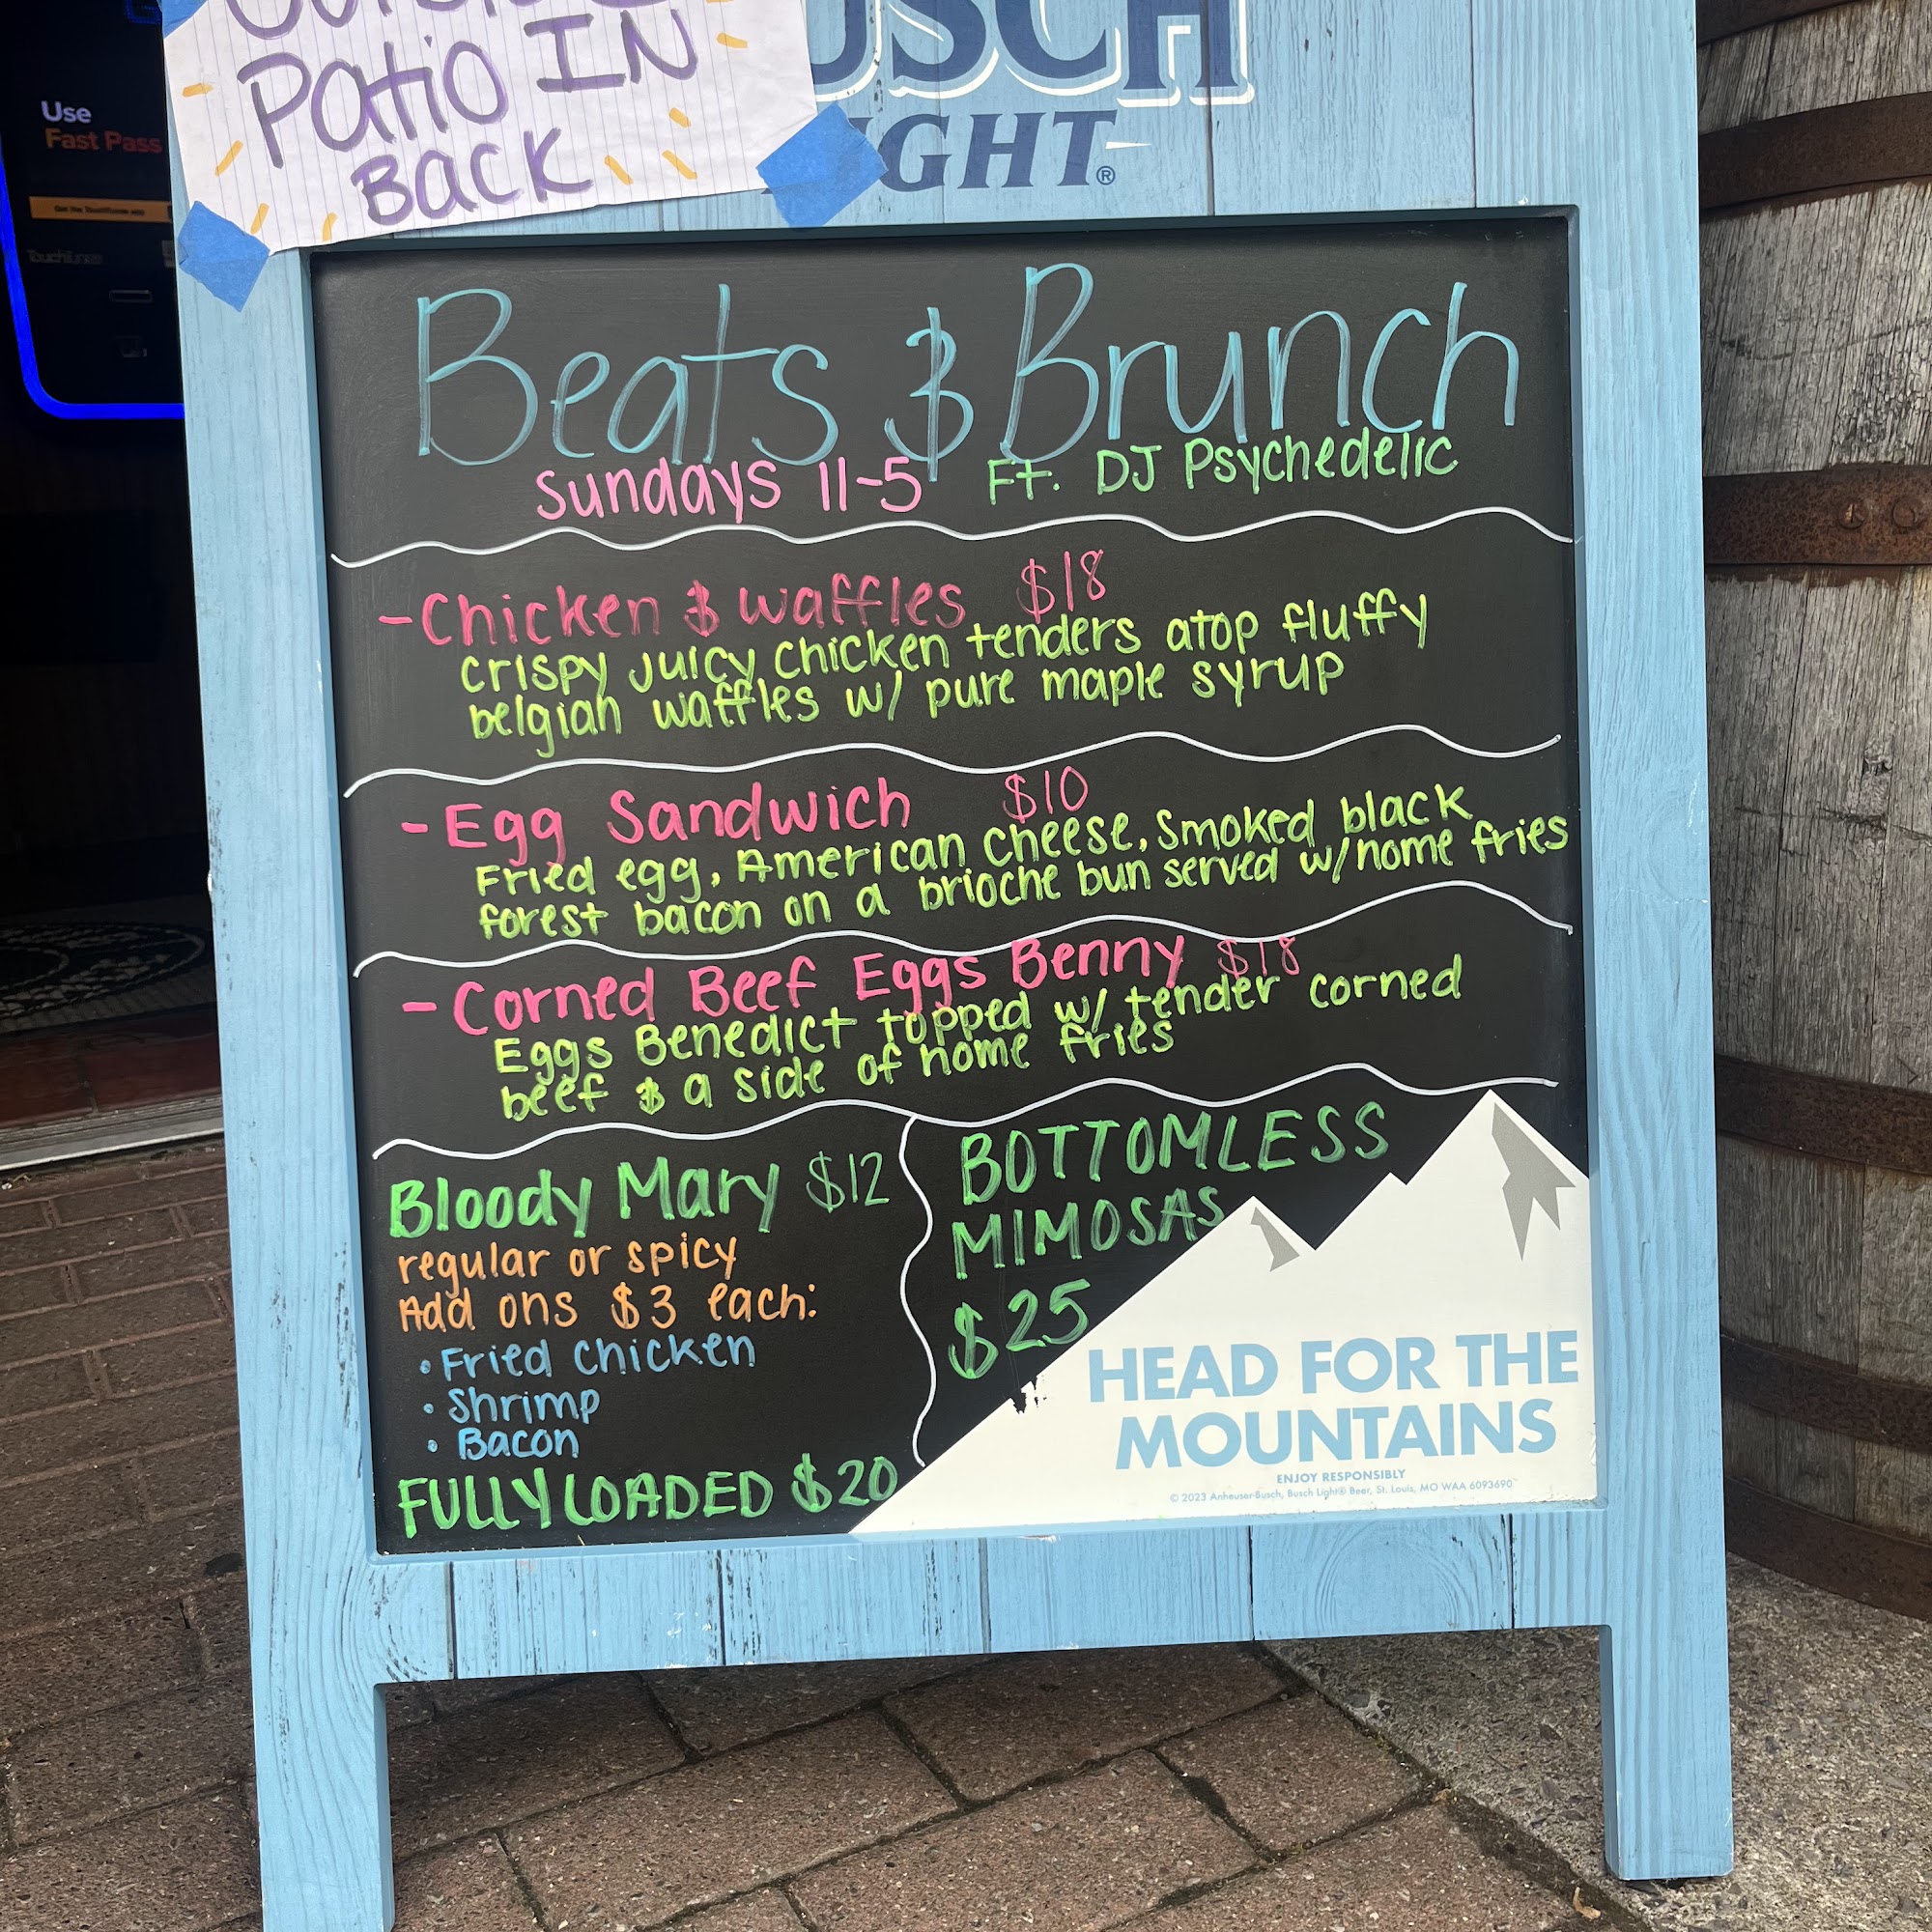 Patio IN
BACK
Use
Fast Pass
BUSCH
LIGHT®
Beats & Brunch
Sundays 11-5 Ft. DJ Psychedelic
- Chicken & waffles $18
crispy juicy chicken tenders atop fluffy
belgian waffles w/ pure maple syrup
- Egg Sandwich $10
Fried egg, American cheese, Smoked black
forest bacon on a brioche bun served w/home fries
- Corned Beef Eggs Benny $18
Eggs Benedict topped w/ tender corned
beef & a side of home fries
Bloody Mary $12
regular or spicy
Add ons $3 each:
• Fried chicken
• Shrimp
• Bacon
FULLY LOADED $20
BOTTOMLESS
MIMOSAS
$25
HEAD FOR THE
MOUNTAINS
ENJOY RESPONSIBLY
© 2023 Anheuser-Busch, Busch Light® Beer, St. Louis, MO WAA 6093690